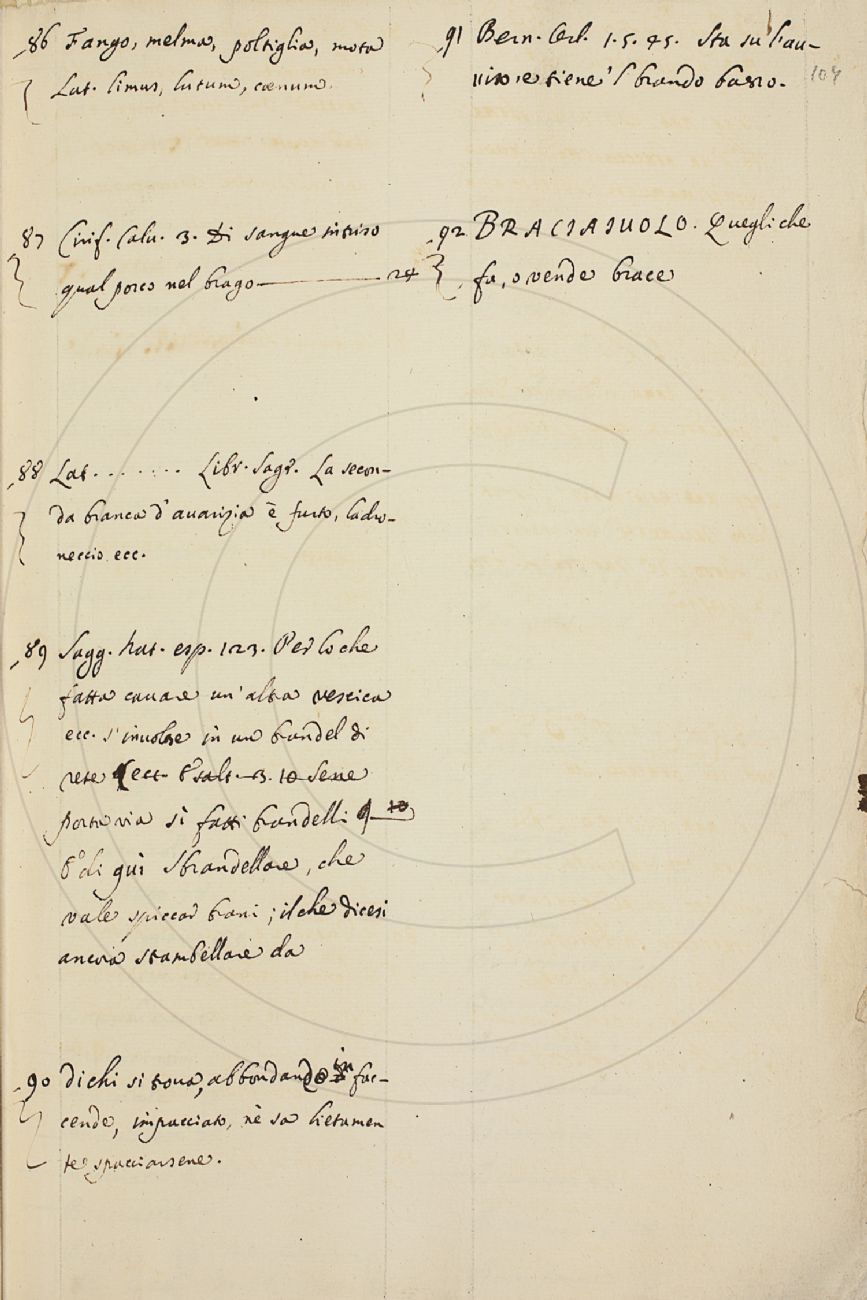 86 Fango, melma, poltiglia, mota
Lat. limus, lutum, cœnum.
87 Cirif. Calv. 3. Di sangue intriso
qual porco nel brago 24
88 Lat. . . . . . . Libr. Sagr. La secon-
da branca d'avarizia è furto, ladro-
neccio ecc.
89 Sagg. nat. esp. 123. Per lo che
fatta cavare un'altra vescica
ecc. s'involse in un brandel di
rete ecc. Salt. 3. 10 Sene
porta via sì fatti brandelli
di quì Sbrandellare, che
vale spiccar brani; il che dicesi
ancora strambellare da
90 di chi si trova, abbondando in fac-
cende, impacciato, nè sa lietamen
te spacciarsene.
91 Bern. Orl. 1. 5. 45. Sta su l'au-
viso, e tiene 'l brando basso.
107
92 BRACIAIUOLO. Quegli che
fa, o vende brace